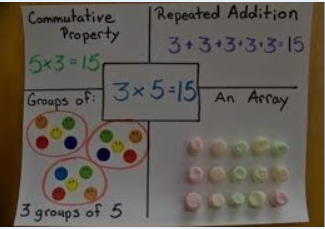 Commutative
Property
5×3=15
Repeated Addition
3+3+3+3+3=15
3×5=15
Groups of:
3 groups of 5
An Array